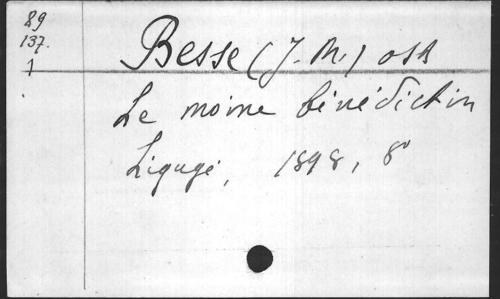 89
137.
1
Besse (J. M.) OSB
Le moine bénédictin
Ligugé, 1898, 8º